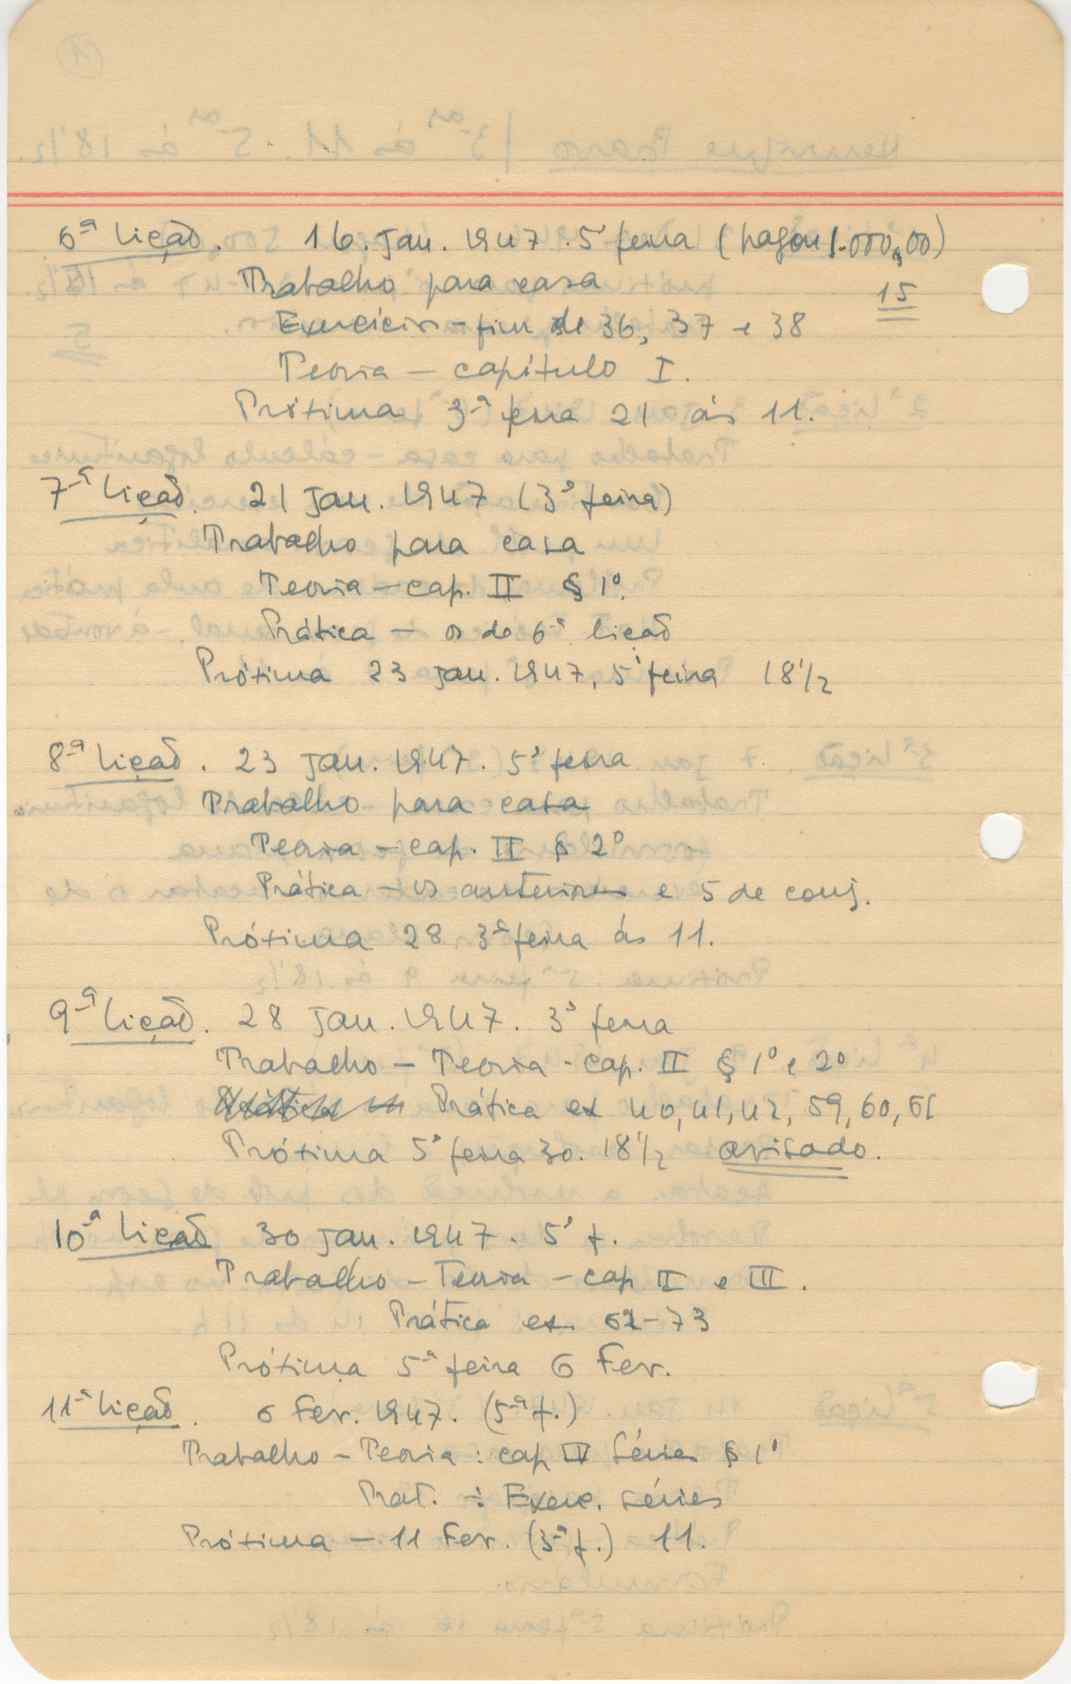 6ª lição. 16. Jan. 1947. 5ª feira (pagou 1.000,00)
Trabalho para casa 15
Exercícios - fim de 36, 37 e 38
Teoria — capítulo I.
Próxima 3ª feira 21 ás 11.
7ª lição. 21 Jan. 1947 (3ª feira)
Trabalho para casa
Teoria — cap. II § 1º.
Prática — os da 6ª lição
Próxima 23 Jan. 1947, 5ª feira 18 1/2
8ª lição. 23 Jan. 1947. 5ª feira
Trabalho para casa
Teoria — cap. II § 2º
Prática — os anteriores e 5 de conj.
Próxima 28 3ª feira ás 11.
9ª lição. 28 Jan. 1947. 3ª feira
Trabalho — Teoria - cap. II § 1º e 2º
Prática ex 40, 41, 42, 59, 60, 61
Próxima 5ª feira 30. 18 1/2 avisado.
10ª lição 30 Jan. 1947. 5ª f.
Trabalho — Teoria — cap II e III.
Prática ex. 62-73
Próxima 5ª feira 6 Fev.
11ª lição. 6 Fev. 1947. (5ª f.)
Trabalho — Teoria : cap IV Séries § 1º
Prat. : Exerc. séries
Próxima — 11 Fev. (3ª f.) 11.